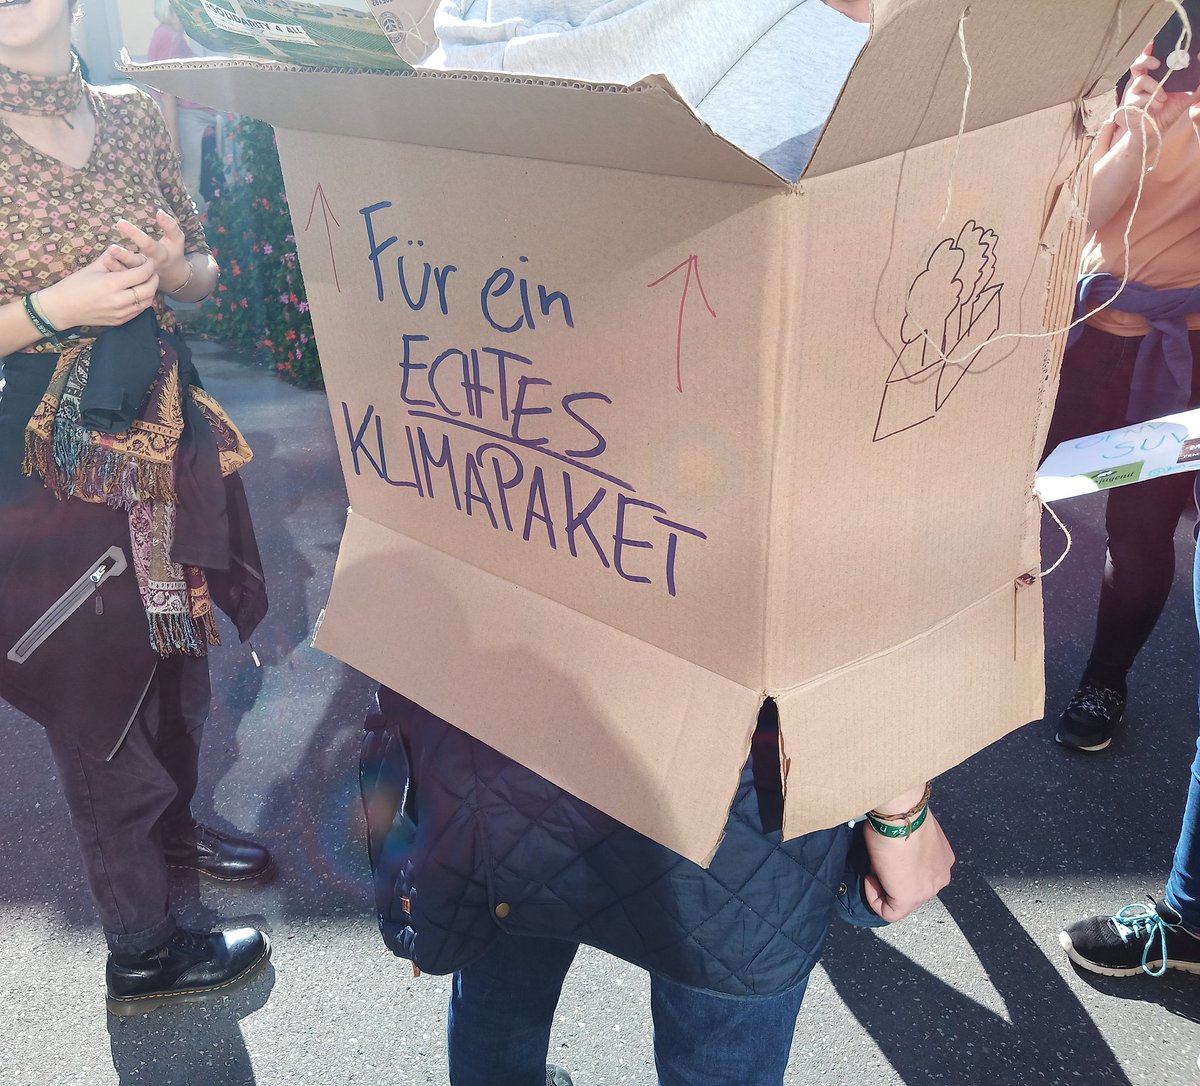 #SOLIDARITY 4 ALL
Für ein
ECHTES
KLIMAPAKET
SUV
jugend